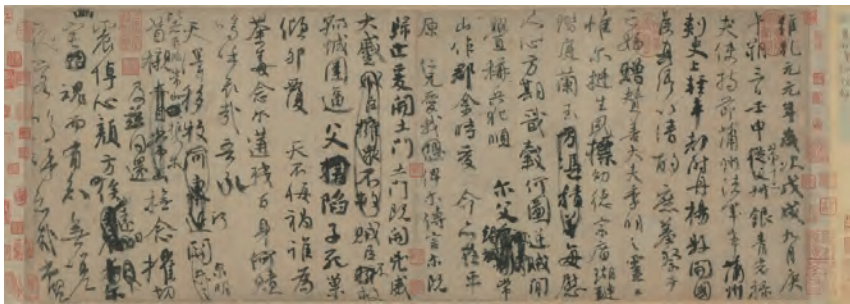 維乾元元年歲次戊戌九月庚
午朔三日壬申第十三從父銀青光祿
夫使持節蒲州諸軍事蒲州
刺史上輕車都尉丹楊縣開國
侯真卿以清酌庶羞祭于
亡姪贈贊善大夫季明之靈曰
惟爾挺生夙標幼德宗廟瑚璉
階庭蘭玉每慰
人心方期戩穀何圖逆賊閒
釁稱兵犯順爾父竭誠常
山作郡余時受命亦在平
原仁兄愛我俾爾傳言爾既
歸止爰開土門土門既開凶威
大蹙賊臣不救
孤城圍逼父陷子死巢
傾卵覆天不悔禍誰為
荼毒念爾遘殘百身何贖
嗚呼哀哉吾承
天澤移牧河關泉明
比者再陷常山攜爾
首櫬及茲同還撫念摧切
震悼心顏方俟遠日
卜爾幽宅魂而有知無嗟
久客嗚呼哀哉尚饗